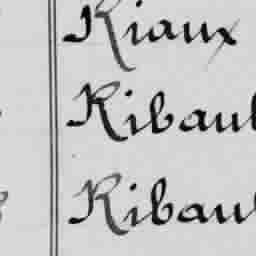 Riaux
Ribaul
Ribaul